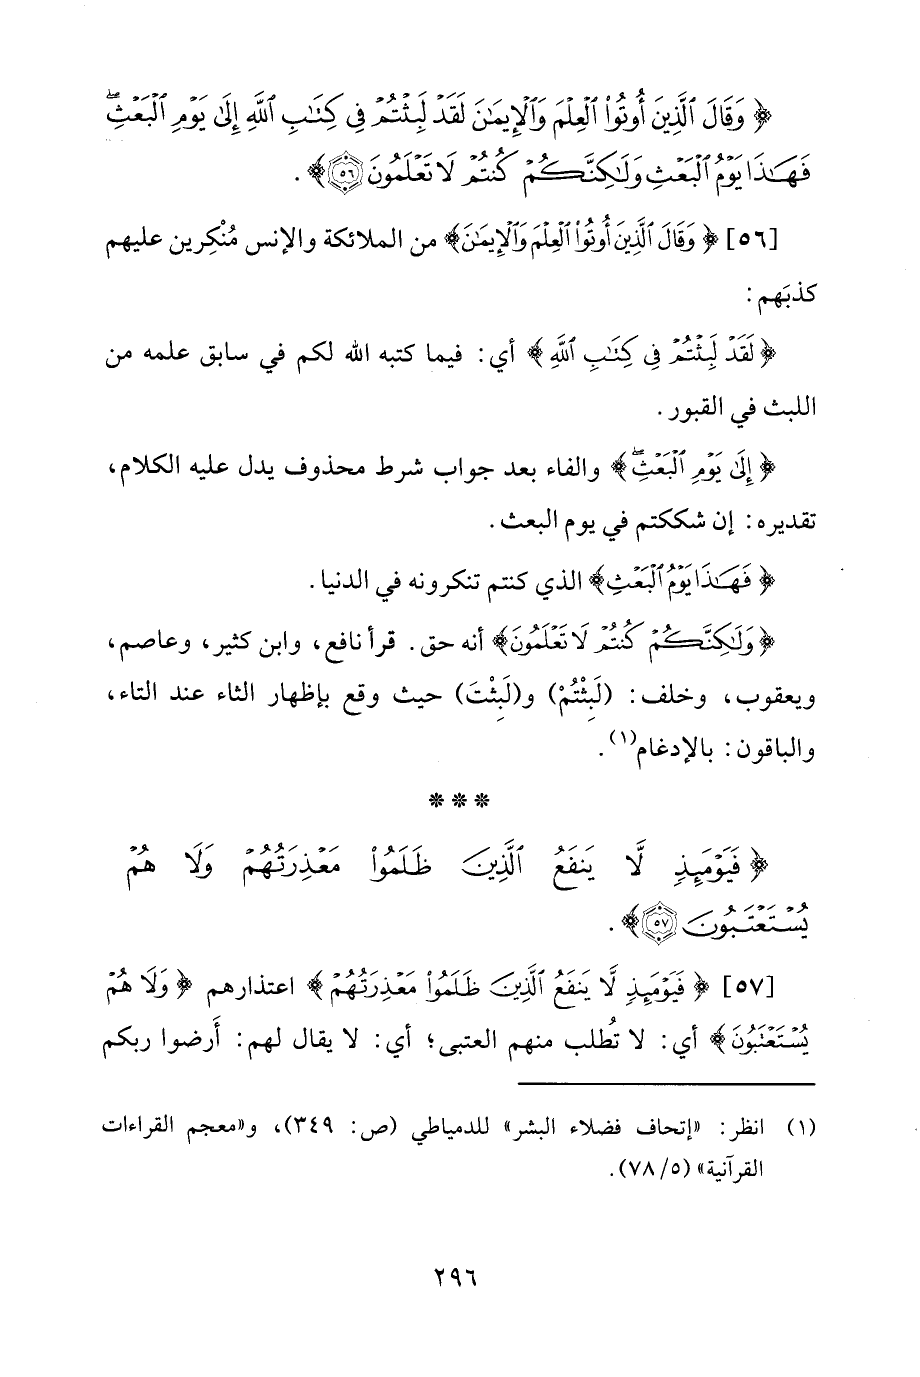 ﴿ وَقَالَ ٱلَّذِينَ أُوتُوا۟ ٱلْعِلْمَ وَٱلْإِيمَٰنَ لَقَدْ لَبِثْتُمْ فِى كِتَٰبِ ٱللَّهِ إِلَىٰ يَوْمِ ٱلْبَعْثِ ۖ
فَهَٰذَا يَوْمُ ٱلْبَعْثِ وَلَٰكِنَّكُمْ كُنتُمْ لَا تَعْلَمُونَ ٥٦ ﴾ .
[٥٦] ﴿ وَقَالَ ٱلَّذِينَ أُوتُوا۟ ٱلْعِلْمَ وَٱلْإِيمَٰنَ ﴾ من الملائكة والإنس مُنْكِرين عليهم
كذبَهم :
﴿ لَقَدْ لَبِثْتُمْ فِى كِتَٰبِ ٱللَّهِ ﴾ أي : فيما كتبه الله لكم في سابق علمه من
اللبث في القبور .
﴿ إِلَىٰ يَوْمِ ٱلْبَعْثِ ۖ ﴾ والفاء بعد جواب شرط محذوف يدل عليه الكلام ،
تقديره : إن شككتم في يوم البعث .
﴿ فَهَٰذَا يَوْمُ ٱلْبَعْثِ ﴾ الذي كنتم تنكرونه في الدنيا .
﴿ وَلَٰكِنَّكُمْ كُنتُمْ لَا تَعْلَمُونَ ﴾ أنه حق . قرأ نافع ، وابن كثير ، وعاصم ،
ويعقوب ، وخلف : (لَبِثْتُمْ) و(لَبِثْتَ) حيث وقع بإظهار الثاء عند التاء ،
والباقون : بالإدغام(١) .
***
﴿ فَيَوْمَئِذٍ لَّا يَنفَعُ ٱلَّذِينَ ظَلَمُوا۟ مَعْذِرَتُهُمْ وَلَا هُمْ
يُسْتَعْتَبُونَ ٥٧ ﴾ .
[٥٧] ﴿ فَيَوْمَئِذٍ لَّا يَنفَعُ ٱلَّذِينَ ظَلَمُوا۟ مَعْذِرَتُهُمْ ﴾ اعتذارهم ﴿ وَلَا هُمْ
يُسْتَعْتَبُونَ ﴾ أي : لا تُطلب منهم العتبى ؛ أي : لا يقال لهم : أَرضوا ربكم
(١) انظر : «إتحاف فضلاء البشر» للدمياطي (ص : ٣٤٩) ، و«معجم القراءات
القرآنية» (٥/ ٧٨) .
٢٩٦